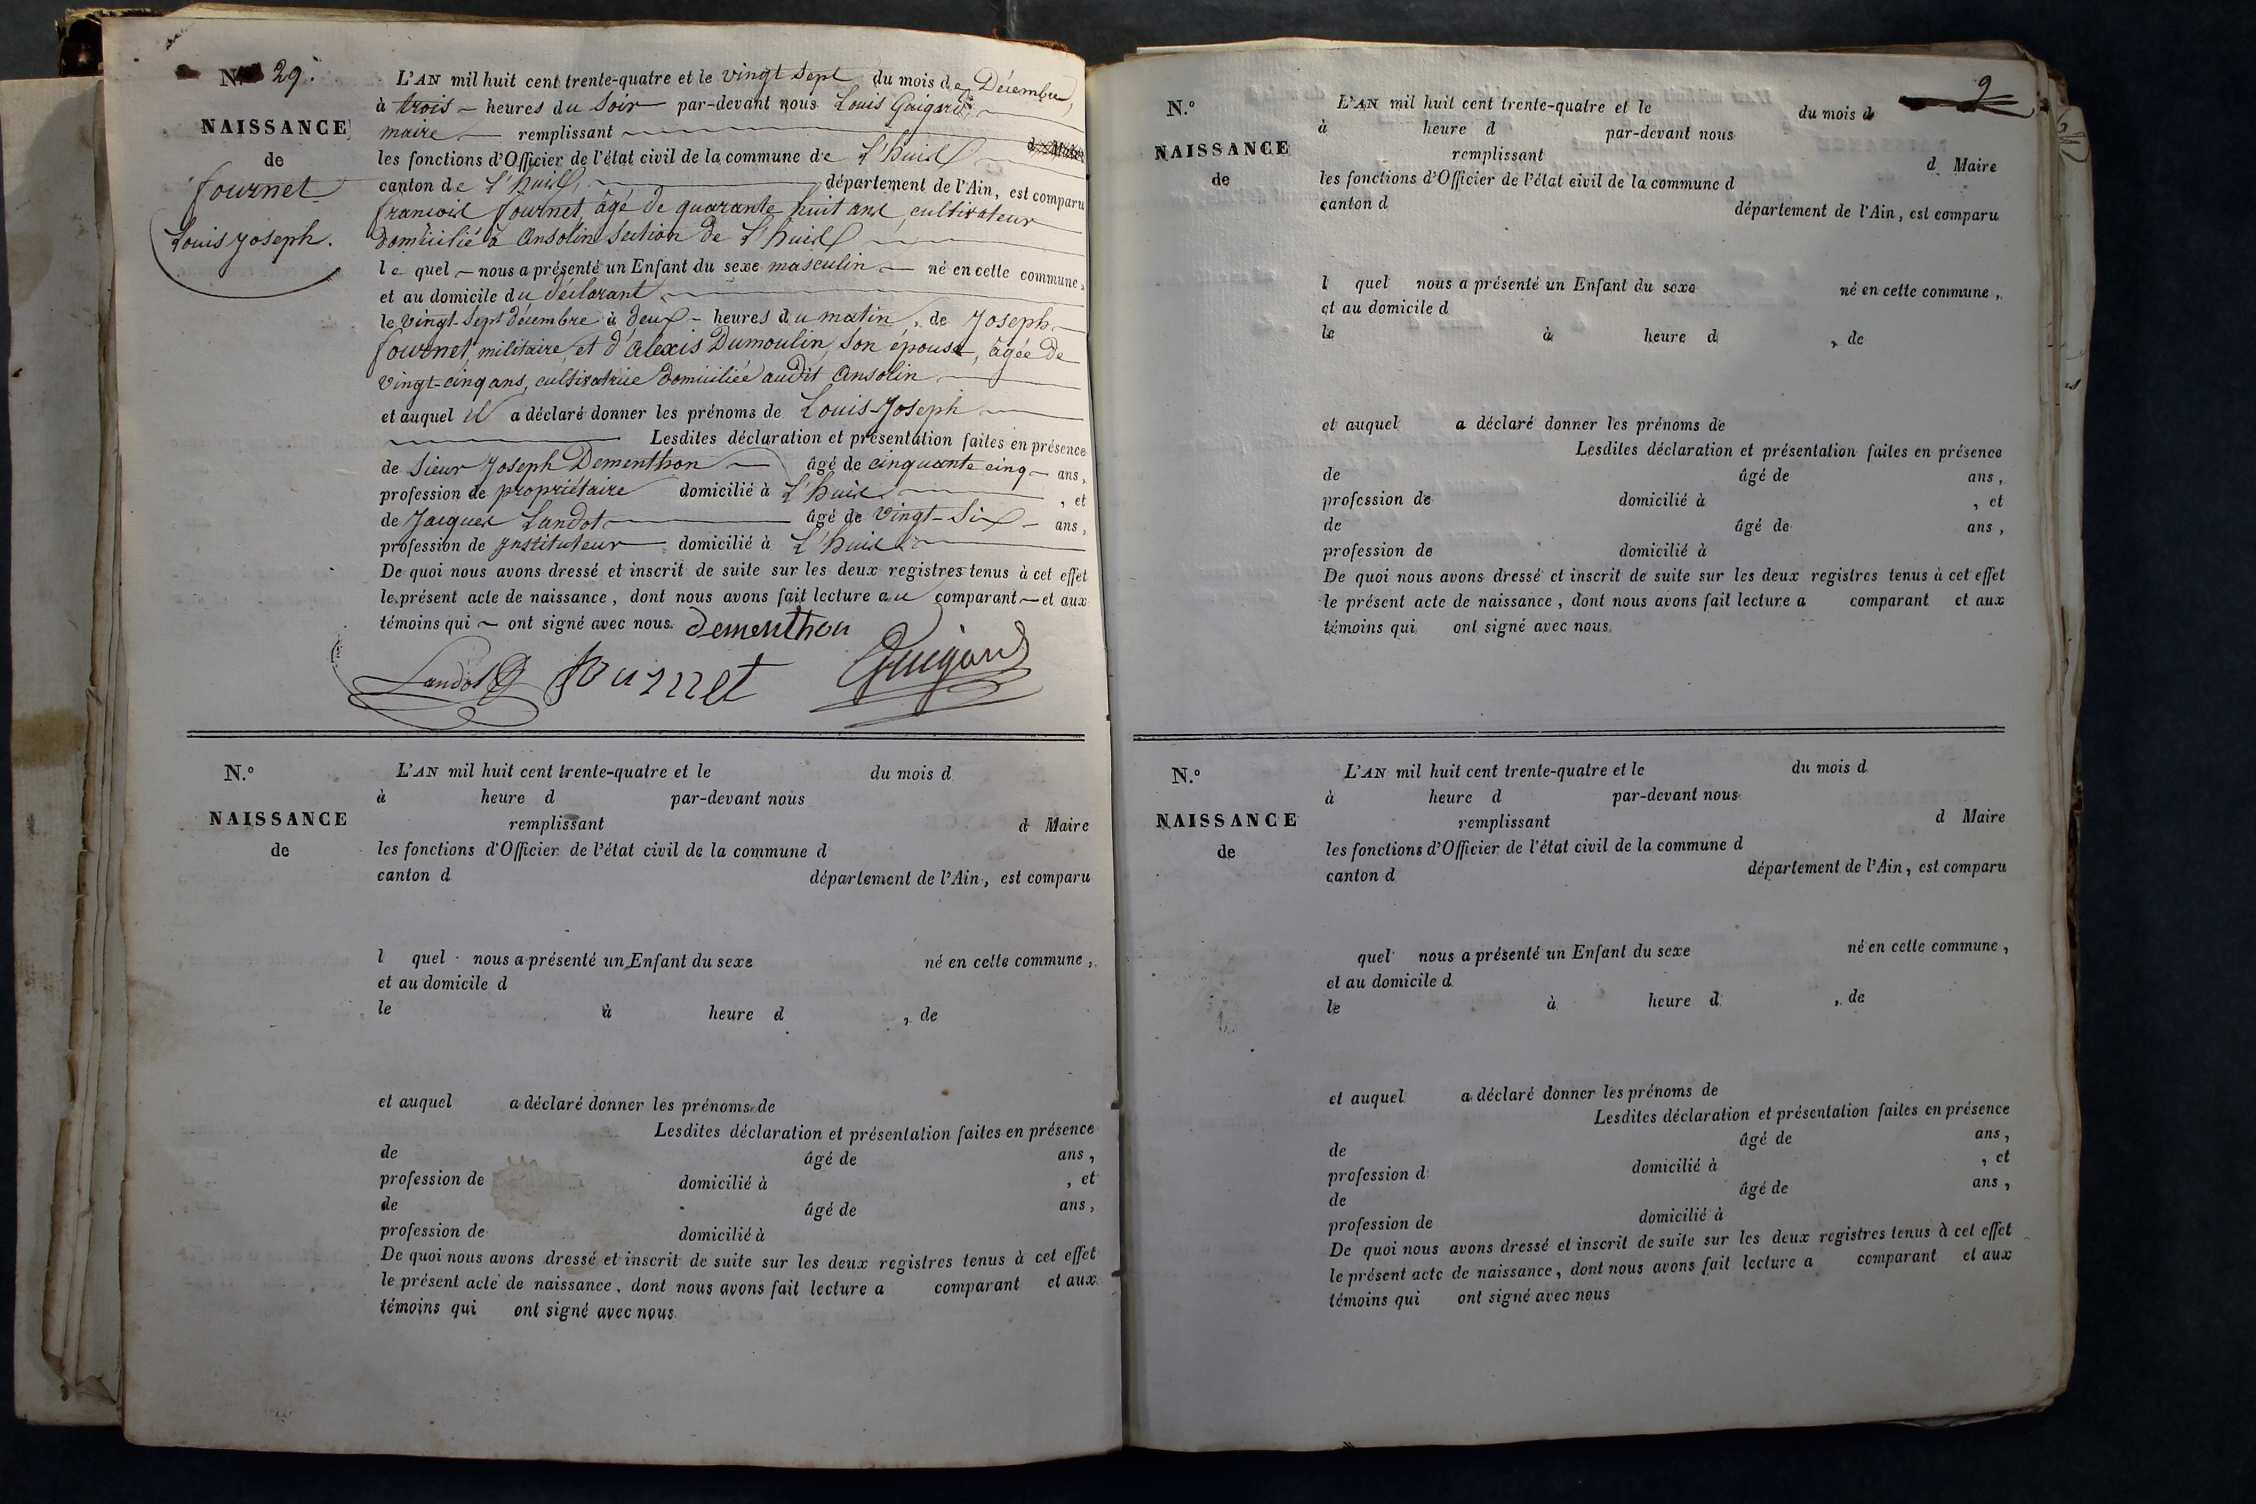 N.º 29.
NAISSANCE
de
fournet
Louis Joseph.
L'AN mil huit cent trente-quatre et le vingt sept du mois de Décembre,
à trois heures du soir par-devant nous Louis Guigard
maire remplissant
les fonctions d'Officier de l'état civil de la commune de L'huis
canton de L'huis, département de l'Ain, est comparu
francois fournet, âgé de quarante huit ans, cultivateur
domicilié à Ansolin section de L'huis
le quel nous a présenté un Enfant du sexe masculin né en cette commune,
et au domicile du déclarant
le vingt-sept décembre à deux heures du matin, de Joseph
fournet, militaire, et d'Alexis Dumoulin, son épouse, âgée de
vingt-cinq ans, cultivatrice domiciliée audit Ansolin
et auquel il a déclaré donner les prénoms de Louis-Joseph
Lesdites déclaration et présentation faites en présence
de Sieur Joseph Dementhon âgé de cinquante cinq ans,
profession de propriétaire domicilié à L'huis , et
de Jacques Landot âgé de vingt-six ans,
profession de instituteur domicilié à L'huis
De quoi nous avons dressé et inscrit de suite sur les deux registres tenus à cet effet
le présent acte de naissance, dont nous avons fait lecture au comparant et aux
témoins qui ont signé avec nous. Dementhon
Landot fournet Guigard
N.º
NAISSANCE
de
L'AN mil huit cent trente-quatre et le du mois d
à heure d par-devant nous
remplissant d Maire
les fonctions d'Officier de l'état civil de la commune d
canton d département de l'Ain, est comparu
l quel nous a présenté un Enfant du sexe né en cette commune,
et au domicile d
le à heure d , de
et auquel a déclaré donner les prénoms de
Lesdites déclaration et présentation faites en présence
de âgé de ans,
profession de domicilié à , et
de âgé de ans,
profession de domicilié à
De quoi nous avons dressé et inscrit de suite sur les deux registres tenus à cet effet
le présent acte de naissance, dont nous avons fait lecture a comparant et aux
témoins qui ont signé avec nous
9
N.º
NAISSANCE
de
L'AN mil huit cent trente-quatre et le du mois d
à heure d par-devant nous
remplissant d Maire
les fonctions d'Officier de l'état civil de la commune d
canton d département de l'Ain, est comparu
l quel nous a présenté un Enfant du sexe né en cette commune,
et au domicile d
le à heure d , de
et auquel a déclaré donner les prénoms de
Lesdites déclaration et présentation faites en présence
de âgé de ans,
profession de domicilié à , et
de âgé de ans,
profession de domicilié à
De quoi nous avons dressé et inscrit de suite sur les deux registres tenus à cet effet
le présent acte de naissance, dont nous avons fait lecture a comparant et aux
témoins qui ont signé avec nous.
N.º
NAISSANCE
de
L'AN mil huit cent trente-quatre et le du mois d
à heure d par-devant nous
remplissant d Maire
les fonctions d'Officier de l'état civil de la commune d
canton d département de l'Ain, est comparu
quel nous a présenté un Enfant du sexe né en cette commune,
et au domicile d
le à heure d , de
et auquel a déclaré donner les prénoms de
Lesdites déclaration et présentation faites en présence
de âgé de ans,
profession d domicilié à , et
de âgé de ans,
profession de domicilié à
De quoi nous avons dressé et inscrit de suite sur les deux registres tenus à cet effet
le présent acte de naissance, dont nous avons fait lecture a comparant et aux
témoins qui ont signé avec nous